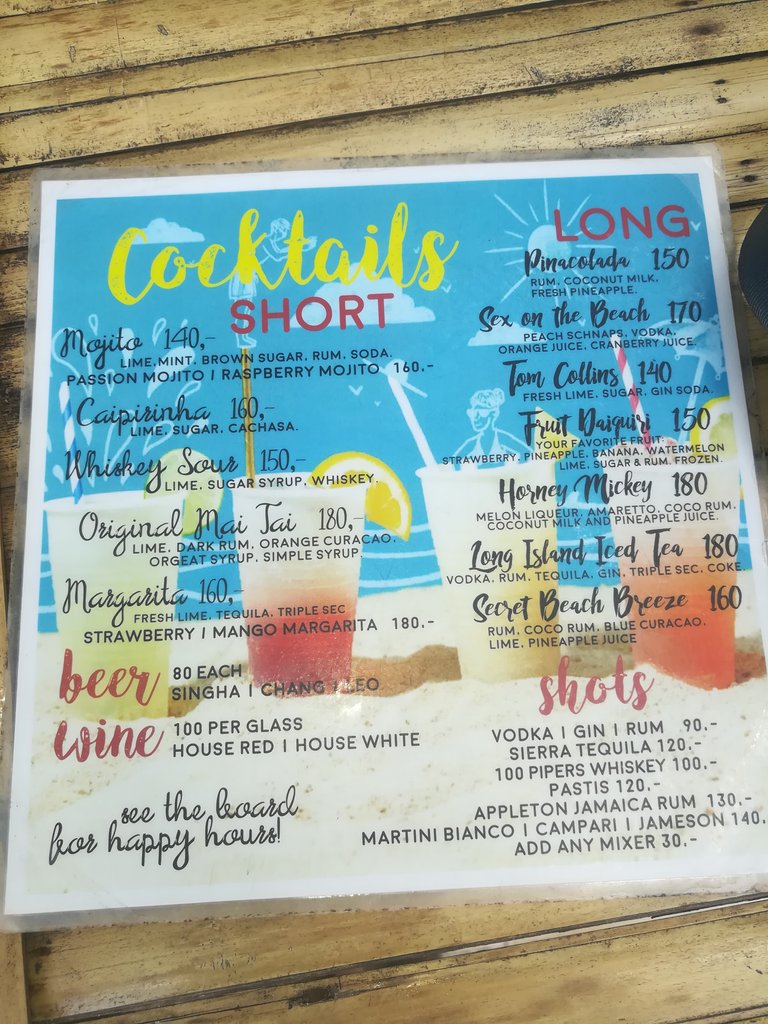 Cocktails
SHORT
Mojito 140,-
LIME, MINT, BROWN SUGAR, RUM, SODA.
PASSION MOJITO | RASPBERRY MOJITO 160.-
Caipirinha 160,-
LIME, SUGAR, CACHASA.
Whiskey Sour 150,-
LIME, SUGAR SYRUP, WHISKEY.
Original Mai Tai 180,-
LIME, DARK RUM, ORANGE CURACAO,
ORGEAT SYRUP, SIMPLE SYRUP.
Margarita 160,-
FRESH LIME, TEQUILA, TRIPLE SEC
STRAWBERRY | MANGO MARGARITA 180.-
beer
80 EACH
SINGHA | CHANG | LEO
wine
100 PER GLASS
HOUSE RED | HOUSE WHITE
see the board
for happy hours!
LONG
Pinacolada 150
RUM, COCONUT MILK,
FRESH PINEAPPLE.
Sex on the Beach 170
PEACH SCHNAPS, VODKA,
ORANGE JUICE, CRANBERRY JUICE.
Tom Collins 140
FRESH LIME, SUGAR, GIN SODA.
Fruit Daiquiri 150
YOUR FAVORITE FRUIT:
STRAWBERRY, PINEAPPLE, BANANA, WATERMELON
LIME, SUGAR & RUM, FROZEN.
Horney Mickey 180
MELON LIQUEUR, AMARETTO, COCO RUM,
COCONUT MILK AND PINEAPPLE JUICE.
Long Island Iced Tea 180
VODKA, RUM, TEQUILA, GIN, TRIPLE SEC, COKE.
Secret Beach Breeze 160
RUM, COCO RUM, BLUE CURACAO,
LIME, PINEAPPLE JUICE
shots
VODKA | GIN | RUM 90.-
SIERRA TEQUILA 120.-
100 PIPERS WHISKEY 100.-
PASTIS 120.-
APPLETON JAMAICA RUM 130.-
MARTINI BIANCO | CAMPARI | JAMESON 140.
ADD ANY MIXER 30.-